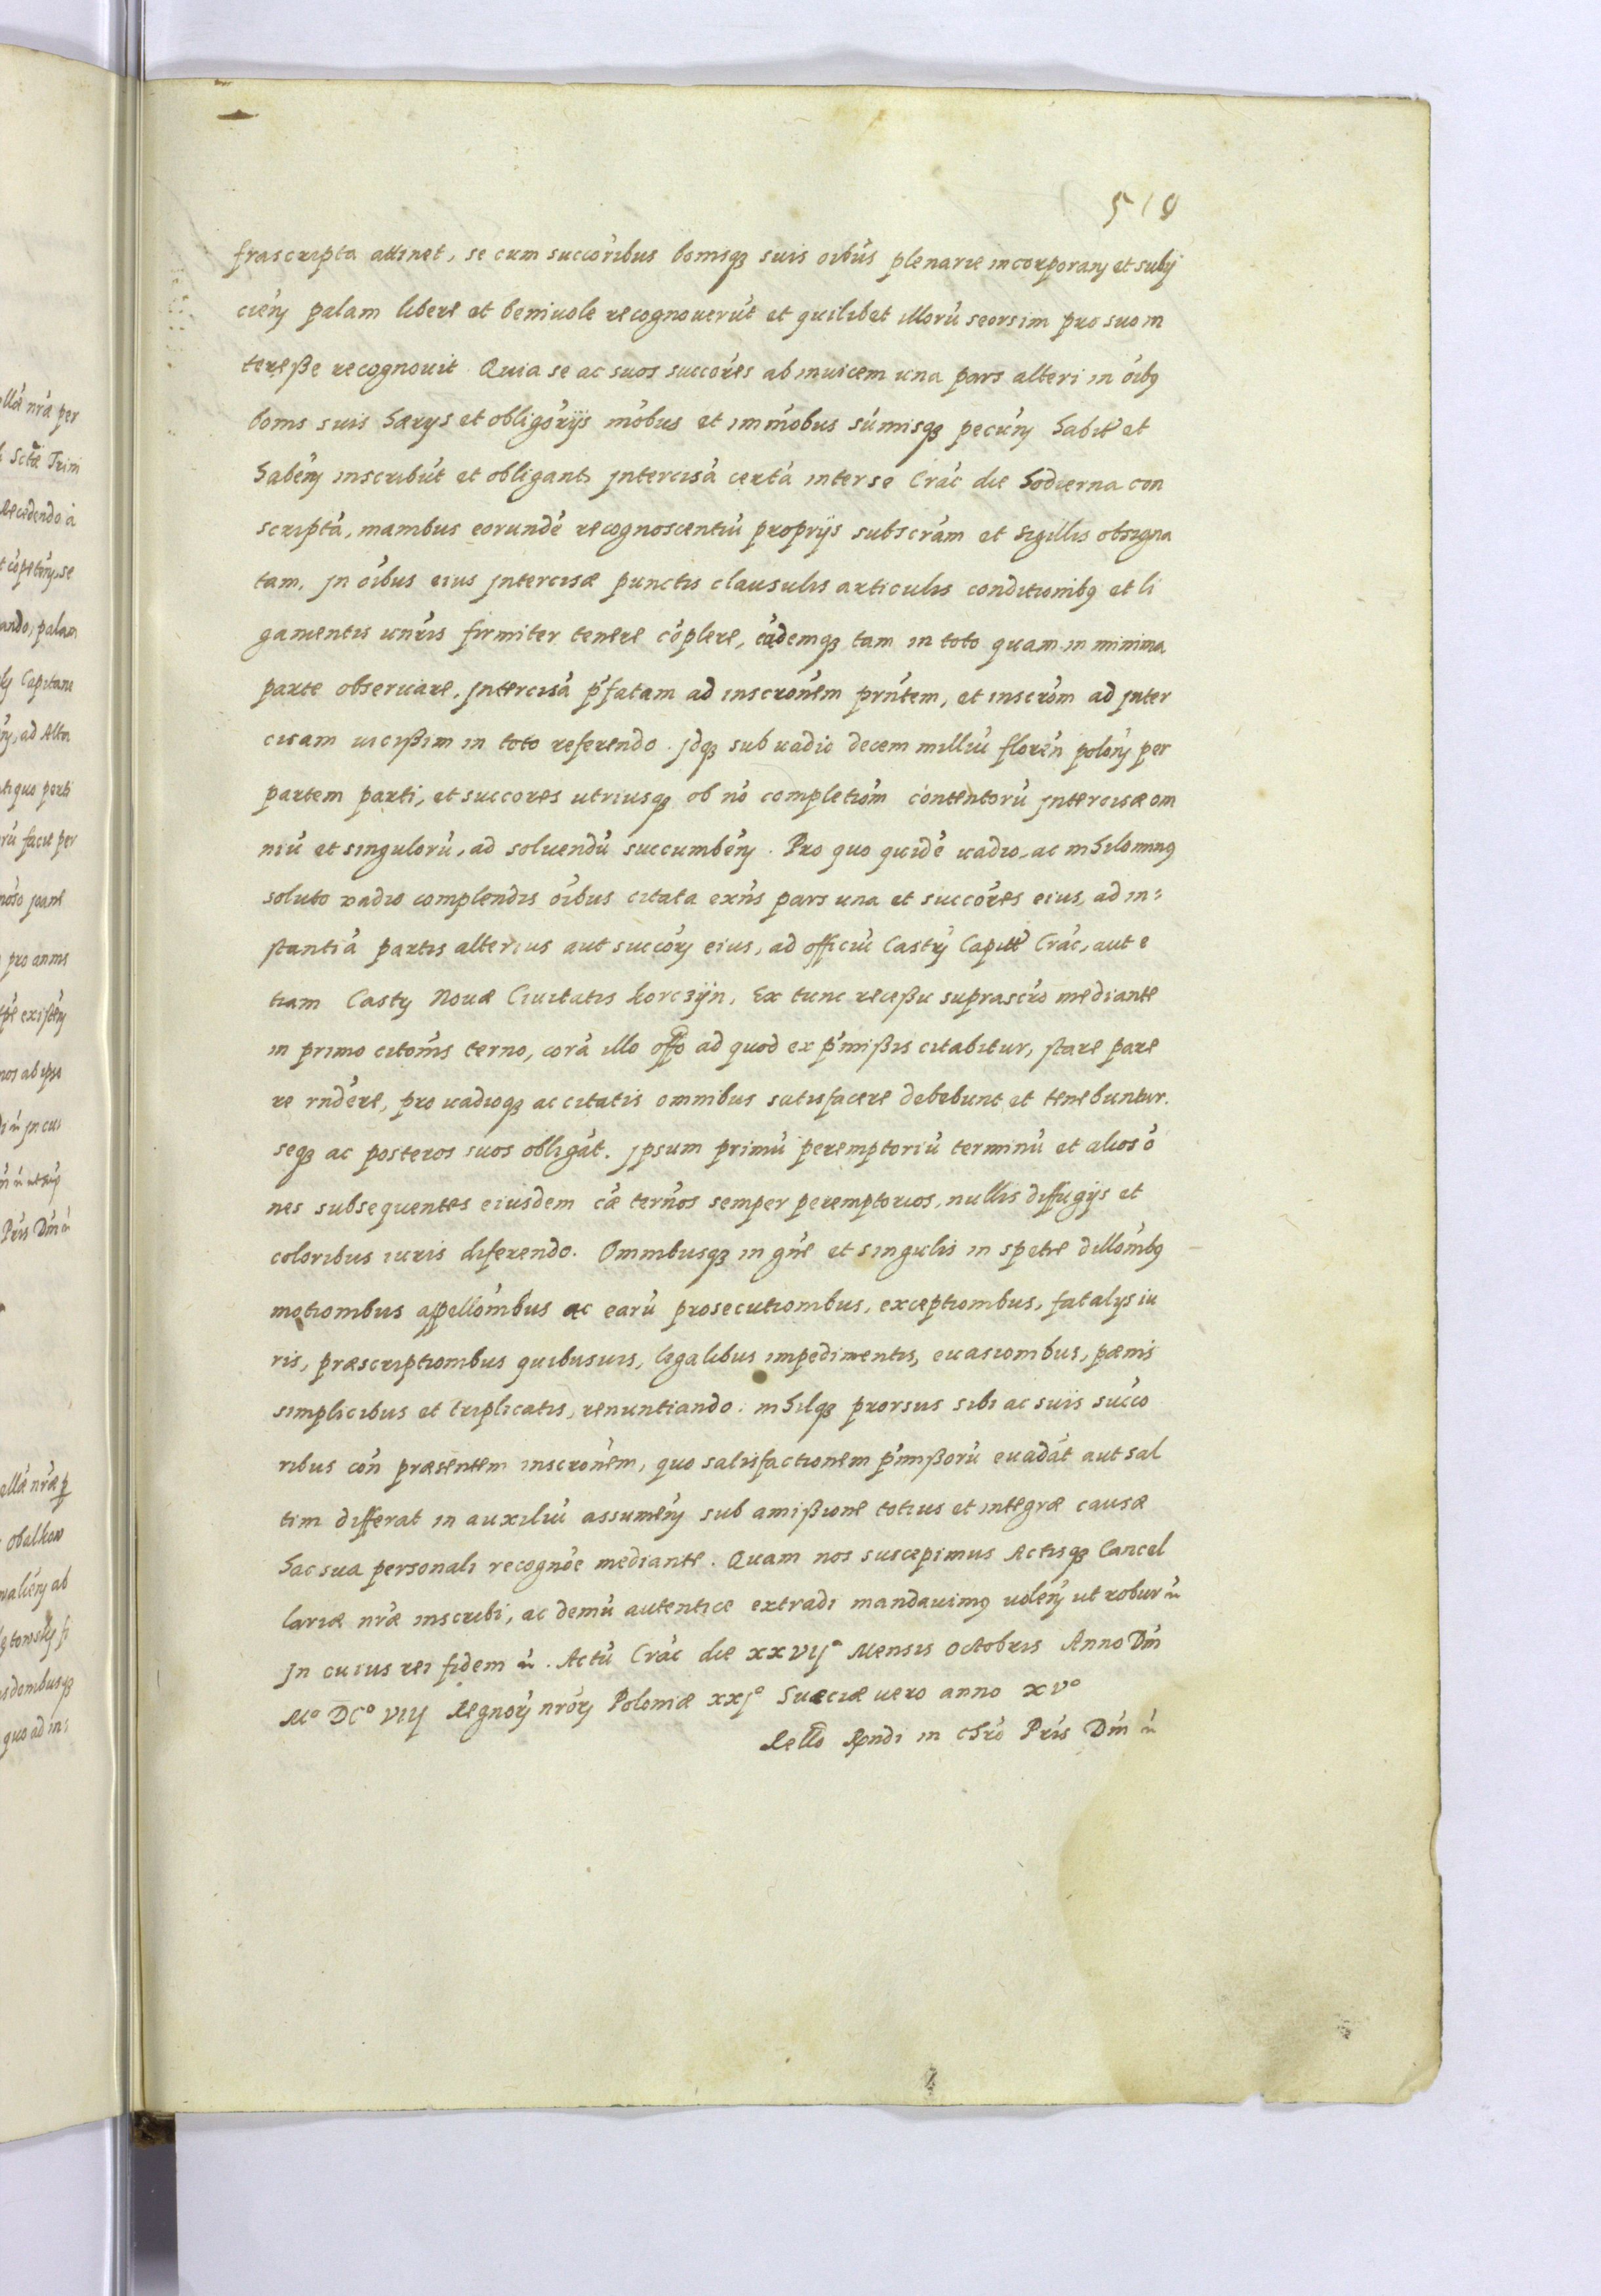 519
frascripta attinet, se cum succoribus bonisqȝ suis oibus plenarie incorporan et subij
cien palam libere et beniuole recognouerut et quilibet illoru seorsim pro suo in
teresse recognouit. Quia se ac suos succores ab inuicem una pars alteri in oibꝯ
bonis suis haerijs et obligorijs mobus et immobus sumisqȝ pecun habit et
haben inscribut et obligant, jntercisa certa inter se Crac die hodierna con
scripta, manibus eorunde recognoscentiu proprijs subscram et sigillis obsigna
tam, jn oibus eius jntercisae punctis clausulis articulis conditionibꝯ et li
gamentis unris firmiter tenere coplere, eademqȝ tam in toto quam in minima
parte obseruare, jntercisa pfatam ad inscronem prntem, et inscrom ad jnter
cisam uicissim in toto referendo. jdqȝ sub uadio decem milliu floren polon per
partem parti, et succores utriusqȝ ob no completiom contentoru jntercisae om
niu et singuloru, ad soluendu succumben. Pro quo quide uadio, ac nihilominꝯ
soluto vadio complendis oibus citata exns pars una et succores eius, ad in=
stantia partis alterius aut succor eius, ad officiu Castr Capitt Crac, aut e
tiam Castr Nouae Ciuitatis Korczijn, Ex tunc recessu suprascro mediante
in primo citomis terno, cora illo offo ad quod ex pmissis citabitur, stare pare
re rndere, pro uadioqȝ ac citatis omnibus satisfacere debebunt et tenebuntur.
seqȝ ac posteros suos obligat. jpsum primu peremptoriu terminu et alios o
nes subsequentes eiusdem cae ternos semper peremptorios, nullis diffugijs et
coloribus iuris diferendo. Omnibusqȝ in gne et singulis in spetie dillonibꝯ
motionibus appellonibus ac earu prosecutionibus, exceptionibus, fatalijs iu
ris, praescriptionibus quibusuis, legalibus impedimentis, euasionibus, paenis
simplicibus et triplicatis, renuntiando. nihilqȝ prorsus sibi ac suis succo
ribus con praesentem inscronem, quo satisfactionem pmissoru euadat aut sal
tim differat in auxiliu assumen sub amissione totius et integrae causae
hac sua personali recognoe mediante. Quam nos suscepimus Actisqȝ Cancel
lariae nrae inscribi, ac demu autentice extradi mandauimꝯ uolen ut robur
jn cuius rei fidem. Actu Crac die xxvijº Mensis Octobris Anno Dni
Mº DCº VIIJ Regnor nror Poloniae xxjº Sueciae uero anno xvº
Rello Rndi in Chro Pris Dni